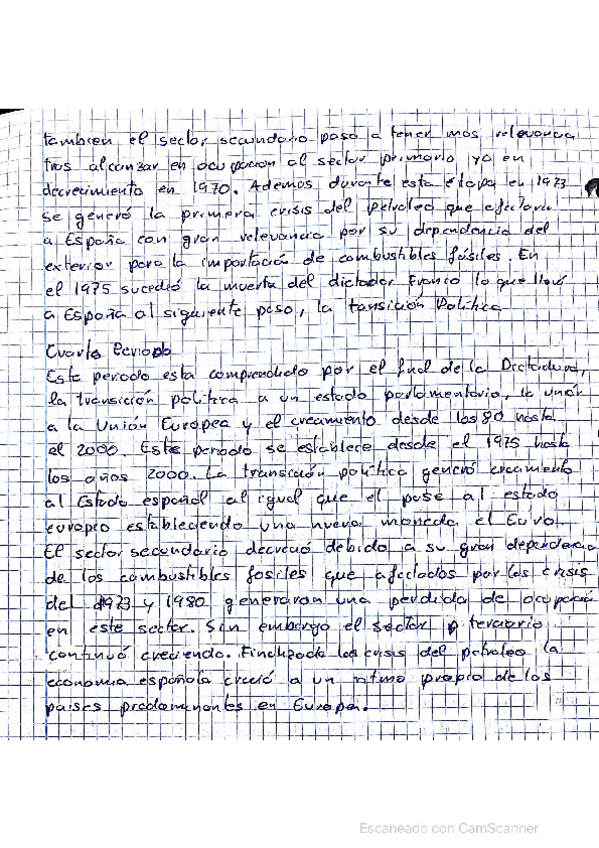 tambien el sector secundario paso a tener mas relevancia
tras alcanzar en ocupacion al sector primario ya en
decrecimiento en 1970. Ademas durante esta etapa en 1973
se generó la primera crisis del petroleo que afectaria
a España con gran relevancia por su dependencia del
exterior para la importación de combustibles fósiles. En
el 1975 sucedió la muerta del dictador Franco lo que llevó
a España al siguiente paso, la transición Política
Cuarto Periodo
Este periodo esta comprendido por el final de la Dictadura,
la transición política a un estado parlamentario, la unión
a la Unión Europea y el crecimiento desde los 80 hasta
el 2000. Este periodo se establece desde el 1975 hasta
los años 2000. La transición política generó crecimiento
al Estado español al igual que el pase al estado
europeo estableciendo una nueva moneda, el Euro.
El sector secundario decreció debido a su gran dependencia
de los combustibles fosiles que afectados por las crisis
del 1973 y 1980 generaron una perdida de ocupación
en este sector. Sin embargo el sector terciario
continuó creciendo. Finalizada las crisis del petroleo la
economia española creció a un ritmo propio de los
paises predominantes en Europa.
Escaneado con CamScanner